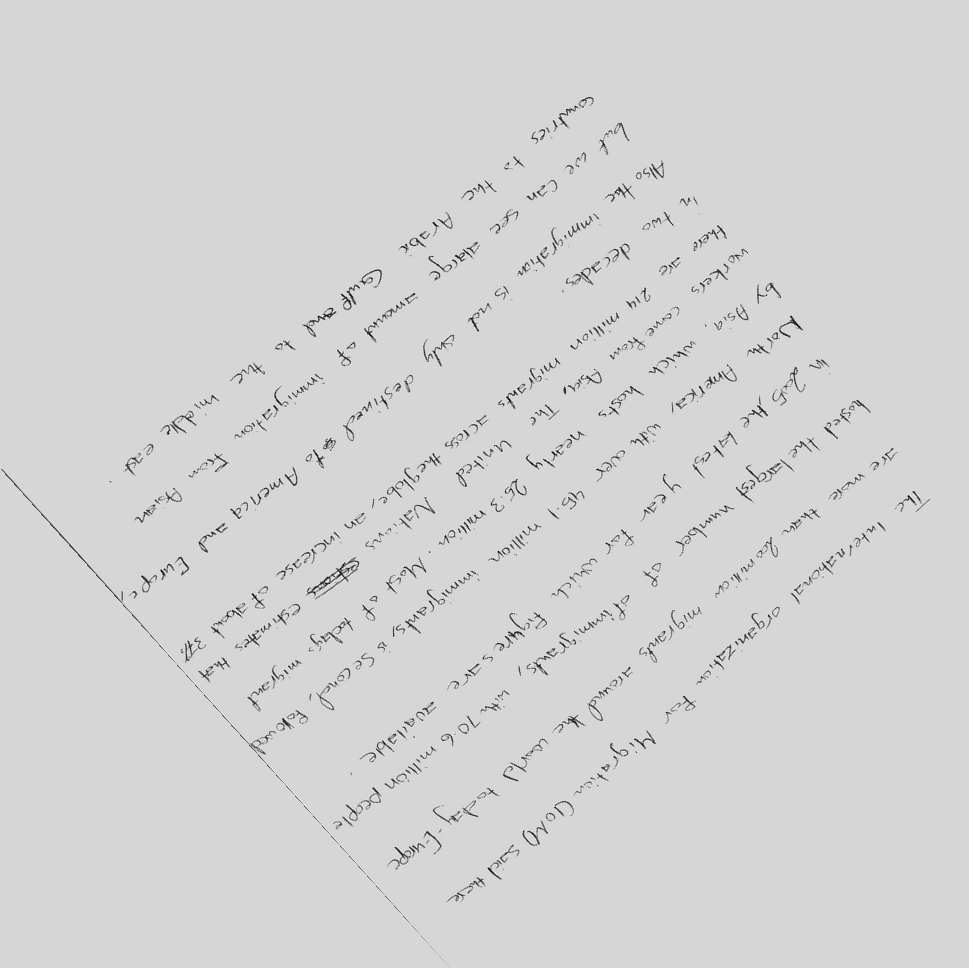 The International organization for Migration (IOM) said there
are more than 200 million migrants around the world today. Europe
hosted the largest number of of immigrants, with 70.6 million people
in 2005, the latest year for which figures are available.
North America, with over 45.1 million immigrants, is second, followed
by Asia, which hosts nearly 25.3 million. Most of todays migrant
workers come from Asia, The United Nations estimates that
there are 214 million migrants across the globe, an increase of about 37%
in two decades.
Also the immigration is not only destined to America and Europe,
but we can see a large amount of immigration from Asian
countries to the Arabi Gulf and to the middle east.